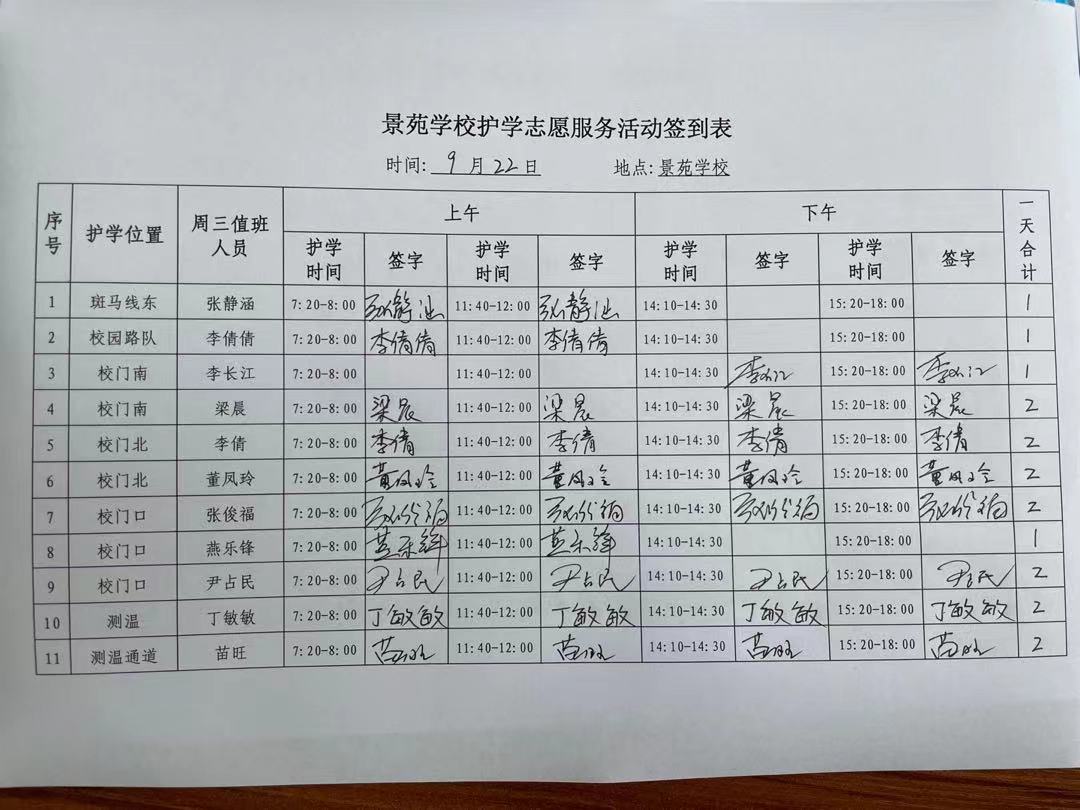 景苑学校护学志愿服务活动签到表
时间: 9 月 22 日 地点: 景苑学校
序号 护学位置 周三值班人员 上午 下午 一天合计
护学时间 签字 护学时间 签字 护学时间 签字 护学时间 签字
1 斑马线东 张静涵 7:20-8:00 张静涵 11:40-12:00 张静涵 14:10-14:30 15:20-18:00 1
2 校园路队 李倩倩 7:20-8:00 李倩倩 11:40-12:00 李倩倩 14:10-14:30 15:20-18:00 1
3 校门南 李长江 7:20-8:00 11:40-12:00 14:10-14:30 李长江 15:20-18:00 李长江 1
4 校门南 梁晨 7:20-8:00 梁晨 11:40-12:00 梁晨 14:10-14:30 梁晨 15:20-18:00 梁晨 2
5 校门北 李倩 7:20-8:00 李倩 11:40-12:00 李倩 14:10-14:30 李倩 15:20-18:00 李倩 2
6 校门北 董凤玲 7:20-8:00 董凤玲 11:40-12:00 董凤玲 14:10-14:30 董凤玲 15:20-18:00 董凤玲 2
7 校门口 张俊福 7:20-8:00 张俊福 11:40-12:00 张俊福 14:10-14:30 张俊福 15:20-18:00 张俊福 2
8 校门口 燕乐锋 7:20-8:00 燕乐锋 11:40-12:00 燕乐锋 14:10-14:30 15:20-18:00 1
9 校门口 尹占民 7:20-8:00 尹占民 11:40-12:00 尹占民 14:10-14:30 尹占民 15:20-18:00 尹占民 2
10 测温 丁敏敏 7:20-8:00 丁敏敏 11:40-12:00 丁敏敏 14:10-14:30 丁敏敏 15:20-18:00 丁敏敏 2
11 测温通道 苗旺 7:20-8:00 苗旺 11:40-12:00 苗旺 14:10-14:30 苗旺 15:20-18:00 苗旺 2